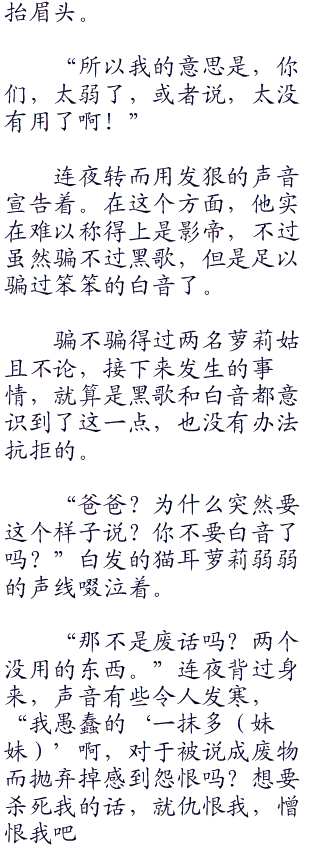 抬眉头。
“所以我的意思是，你
们，太弱了，或者说，太没
有用了啊！”
连夜转而用发狠的声音
宣告着。在这个方面，他实
在难以称得上是影帝，不过
虽然骗不过黑歌，但是足以
骗过笨笨的白音了。
骗不骗得过两名萝莉姑
且不论，接下来发生的事
情，就算是黑歌和白音都意
识到了这一点，也没有办法
抗拒的。
“爸爸？为什么突然要
这个样子说？你不要白音了
吗？”白发的猫耳萝莉弱弱
的声线啜泣着。
“那不是废话吗？两个
没用的东西。”连夜背过身
来，声音有些令人发寒，
“我愚蠢的‘一抹多（妹
妹）’啊，对于被说成废物
而抛弃掉感到怨恨吗？想要
杀死我的话，就仇恨我，憎
恨我吧